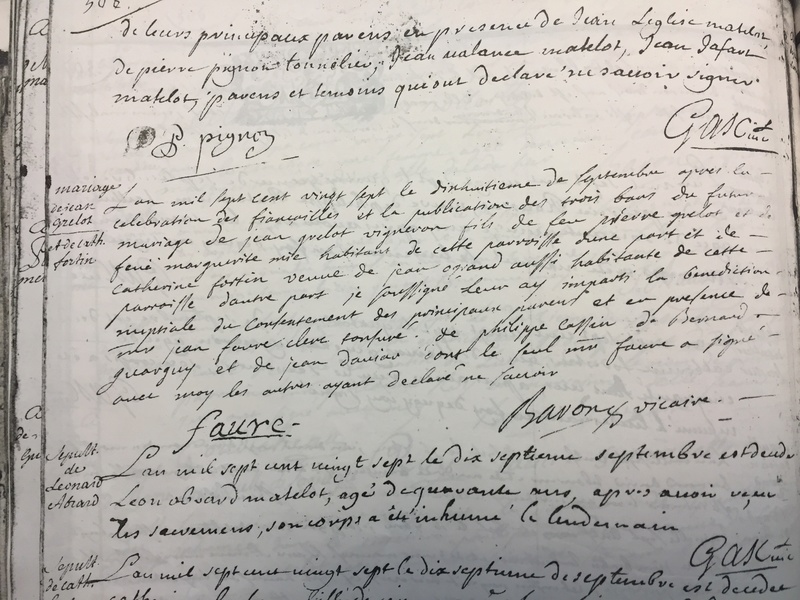 de leurs principaux parens en presence de Jean Leglise matelot,
de pierre pignon tonnelier, Jean valance matelot, Jean Jafart
matelot, parens et temoins qui ont declaré ne savoir signer
P. pignon
Gast
mariage
de jean
Grelot
et de cath.
fortin
L'an mil sept cent vingt sept le dixhuitieme de septembre apres la
celebration des fiançailles et la publication des trois bans du futur
mariage de jean grelot vigneron fils de feu pierre grelot et de
feüe marguerite habitans de cette parroisse d'une part et de
catherine fortin veuve de jean aussi habitante de cette
parroisse d'autre part je soussigné leur ay imparti la benediction
nuptiale du consentement des principaux parens et en presence de
mr jean faure clerc tonsuré de philippe cassin de Bernard
et de jean daviau dont le seul mr faure a signé
avec moy les autres ayant declaré ne sçavoir
faure
vicaire
Sepult.
de
Leonard
Abrard
L'an mil sept cent vingt sept le dix septieme septembre est decedé
Leon abrard matelot, agé de quarante ans, apres avoir reçeu
les sacremens, son corps a été inhumé le lendemain
Gast
Sepult.
de cath.
L'an mil sept cent vingt sept le dix septieme de septembre est decedée